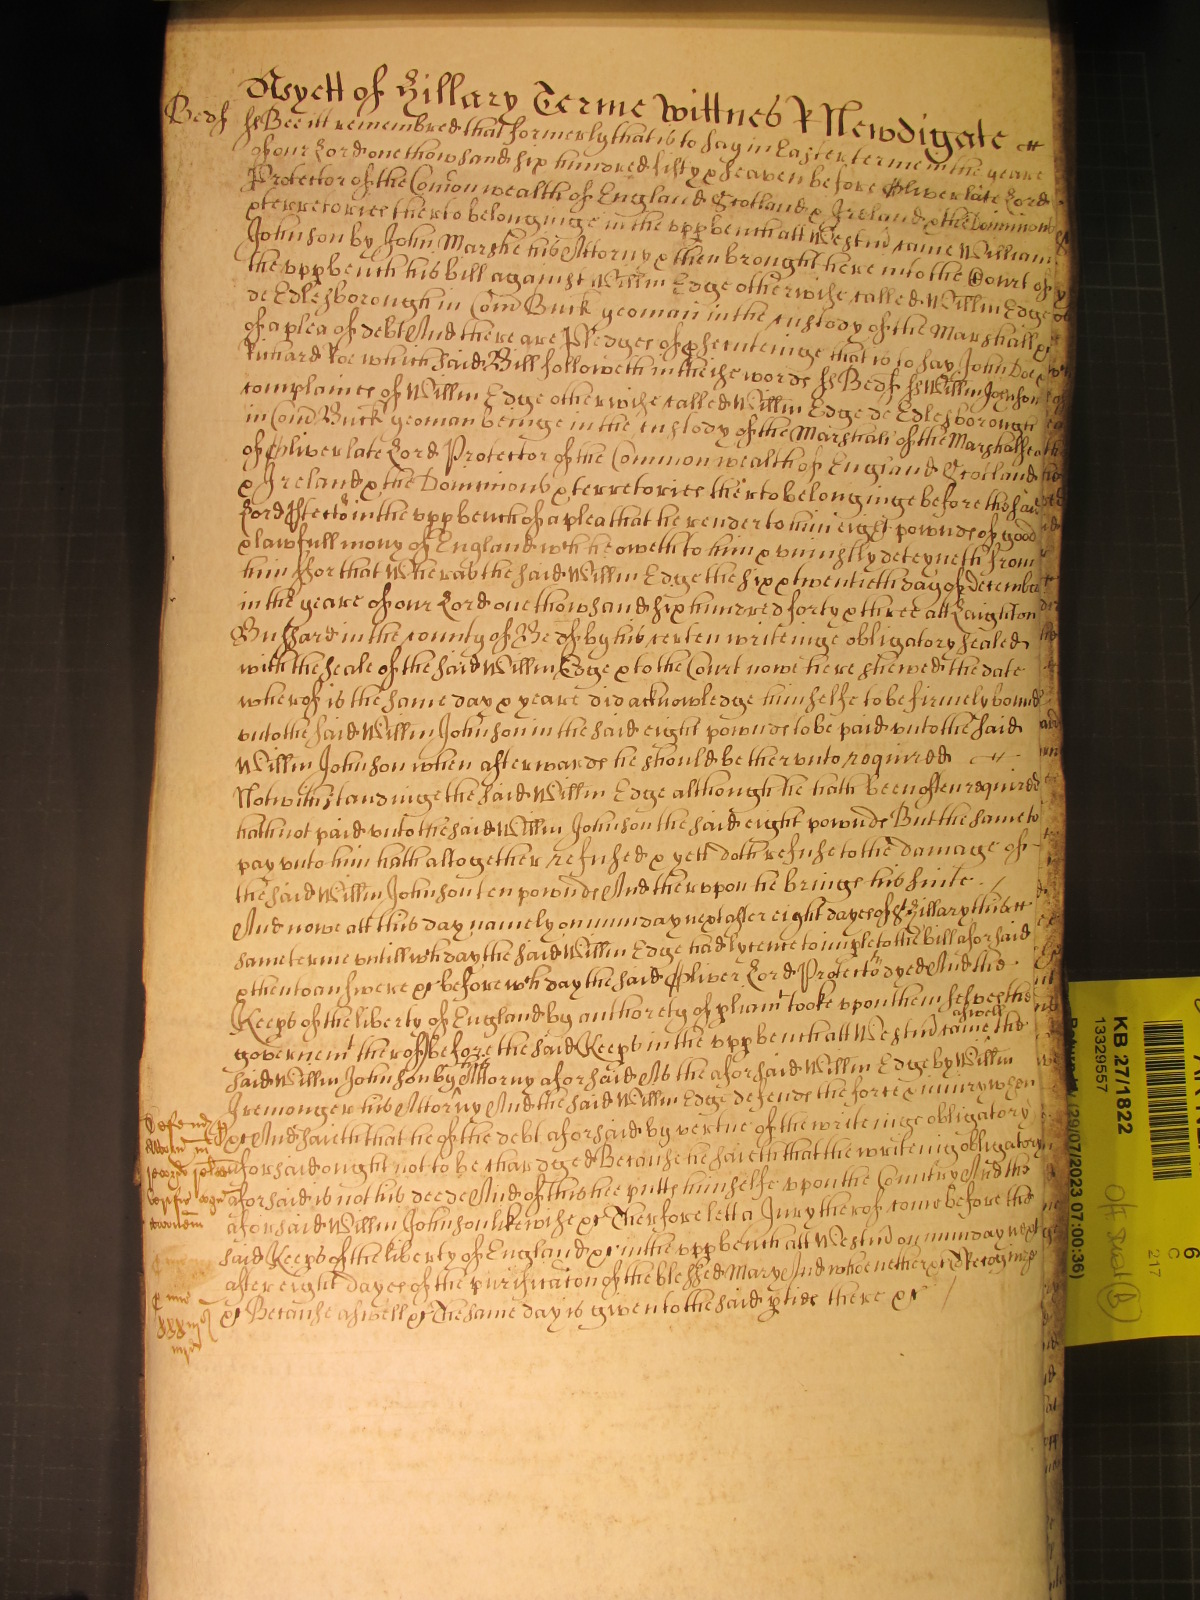 Wyett of Hillary Terme Wittnes R Newdigate
Bedf ss Bee itt remembred that formerly that is to say in Easter terme in the yeare
of our Lord one thowsand six hundred fifty & seaven before Oliver late Lord
Protector of the Com̄on wealth of England Scotland & Ireland & the Dominions
& terretories therto belonginge in the upp bench att Westm̄ came William
Johnson by John Marshe his Attorny & then brought here into the Court of
the upp bench his bill against Willm̄ Edge otherwise called Willm̄ Edge
de Edlesborough in Com̄ Buck yeoman in the custody of the Marshall &c
of a plea of debt And there are Pledges of psecuteinge that is to say John Doe &
Richard Roe which said Bill followeth in theise words ss Bedf ss Willm̄ Johnson
complaines of Willm̄ Edge otherwise called Willm̄ Edge de Edlesborough
in Com̄ Buck yeoman beinge in the custody of the Marshall of the Marshallsea
of Oliver late Lord Protector of the Common wealth of England Scotland
& Ireland & the Dominions & terretories therto belonginge before the said
Lord Ptector in the upp bench of a plea that he render to him eight pownds of good
& lawfull mony of England wch he oweth to him & uniustly deteyneth from
him For that Wheras the said Willm̄ Edge the six & twentieth day of December
in the yeare of our Lord one thowsand six hundred forty & three att Laighton
Bussard in the county of Bedf by his certen writeinge obligatory sealed
with the seale of the said Willm̄ Edge & to the Court nowe here shewed the date
wherof is the same day & yeare did acknowledge himselfe to be firmely bound
unto the said Willm̄ Johnson in the said eight pownds to be paid unto the said
Willm̄ Johnson when afterwards he should be therunto required
Notwithstandinge the said Willm̄ Edge although he hath been often required
hath not paid unto the said Willm̄ Johnson the said eight pownds But the same to
pay unto him hath altogether refused & yett doth refuse to the damage of
the said Willm̄ Johnson ten pownds And therupon he brings his suite
And nowe att this day namely on munday next after eight dayes of St Hillary this
same terme untill wch day the said Willm̄ Edge had lycence to imple to the bill aforsaid
& then to answere &c before wch day the said Oliver Lord Protector dyed And the
Keeps of the liberty of England by authorety of pliamt tooke upon them selves the
governemt therof before the said Keeps in the upp bench att Westm̄ came aswell the
said Willm̄ Johnson by his Attorny aforsaid As the aforsaid Willm̄ Edge by Willm̄
Iremonger his Attorny And the said Willm̄ Edge defends the force & iniury when
&c And saieth that he of the debt aforsaid by vertue of the writeinge obligatory
aforsaid ought not to be chardged Because he saieth that the writeing obligatory
aforsaid is not his deede And of this hee putts himselfe upon the Country And the
aforsaid Willm̄ Johnson likewise &c Therfore lett a Jury therof come before the
said Keeps of the liberty of England &c in the upp bench att Westm̄ on munday next
after eight dayes of the purificacon of the blessed Mary And whoe nether &c To recognize
&c Because aswell &c The same day is given to the said pties there &c
KB 27/1822
13329557
(29/07/2023 07:00:36)
217
C
6